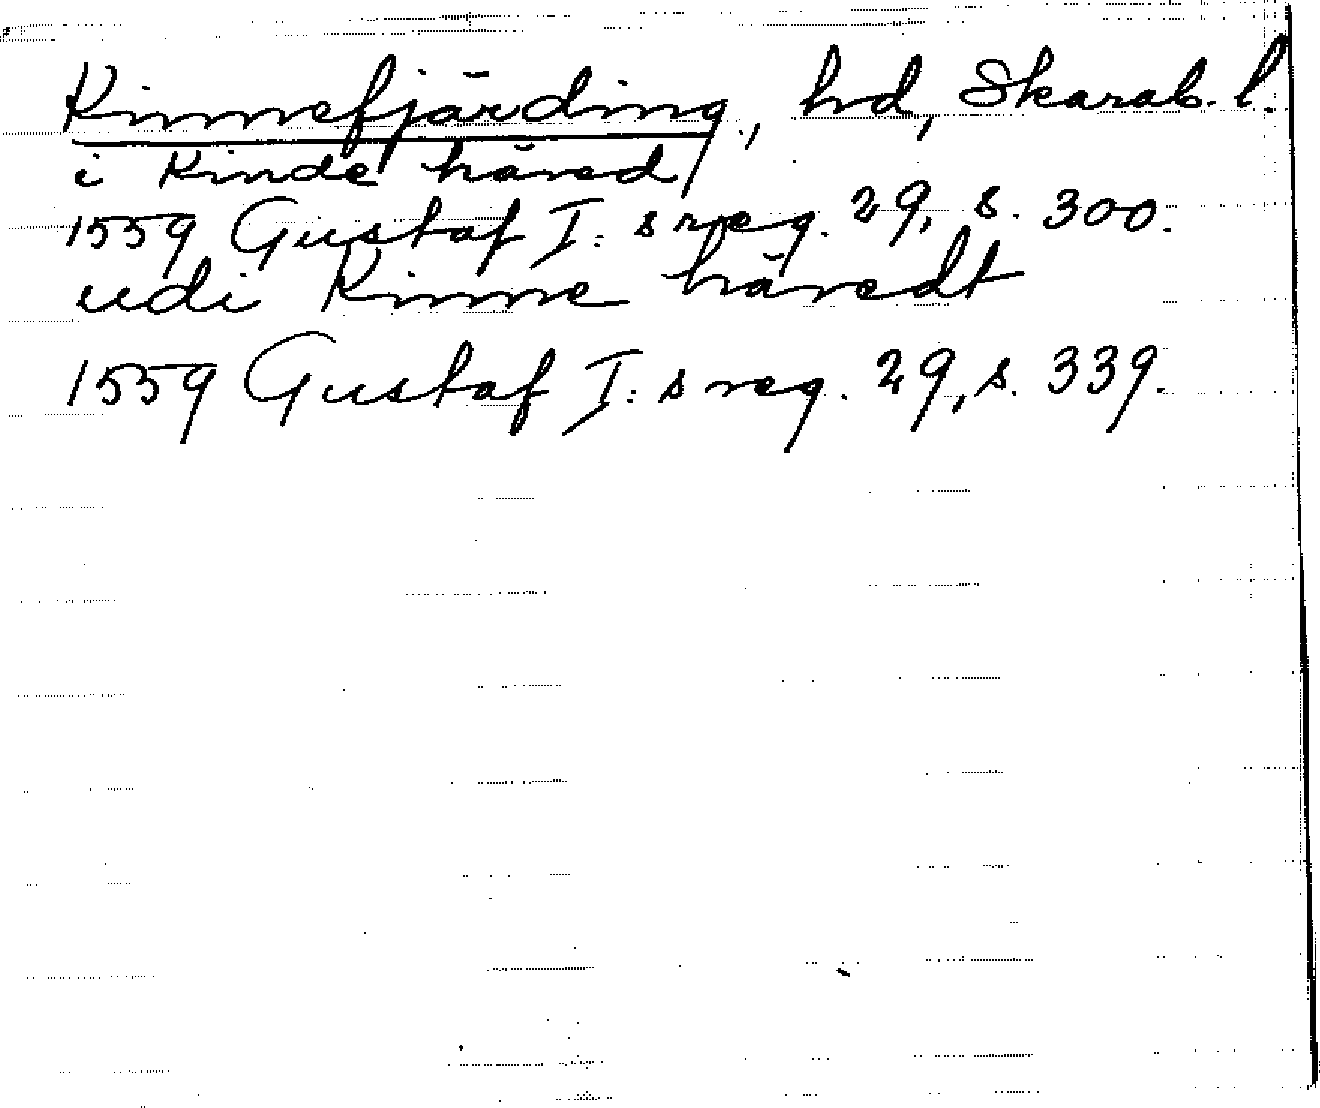 Kinnefjärding, hd, Skarab. l.
i Kinde häred
1559 Gustaf I:s reg. 29, s. 300.
udi Kinne häredt
1559 Gustaf I:s reg. 29, s. 339.